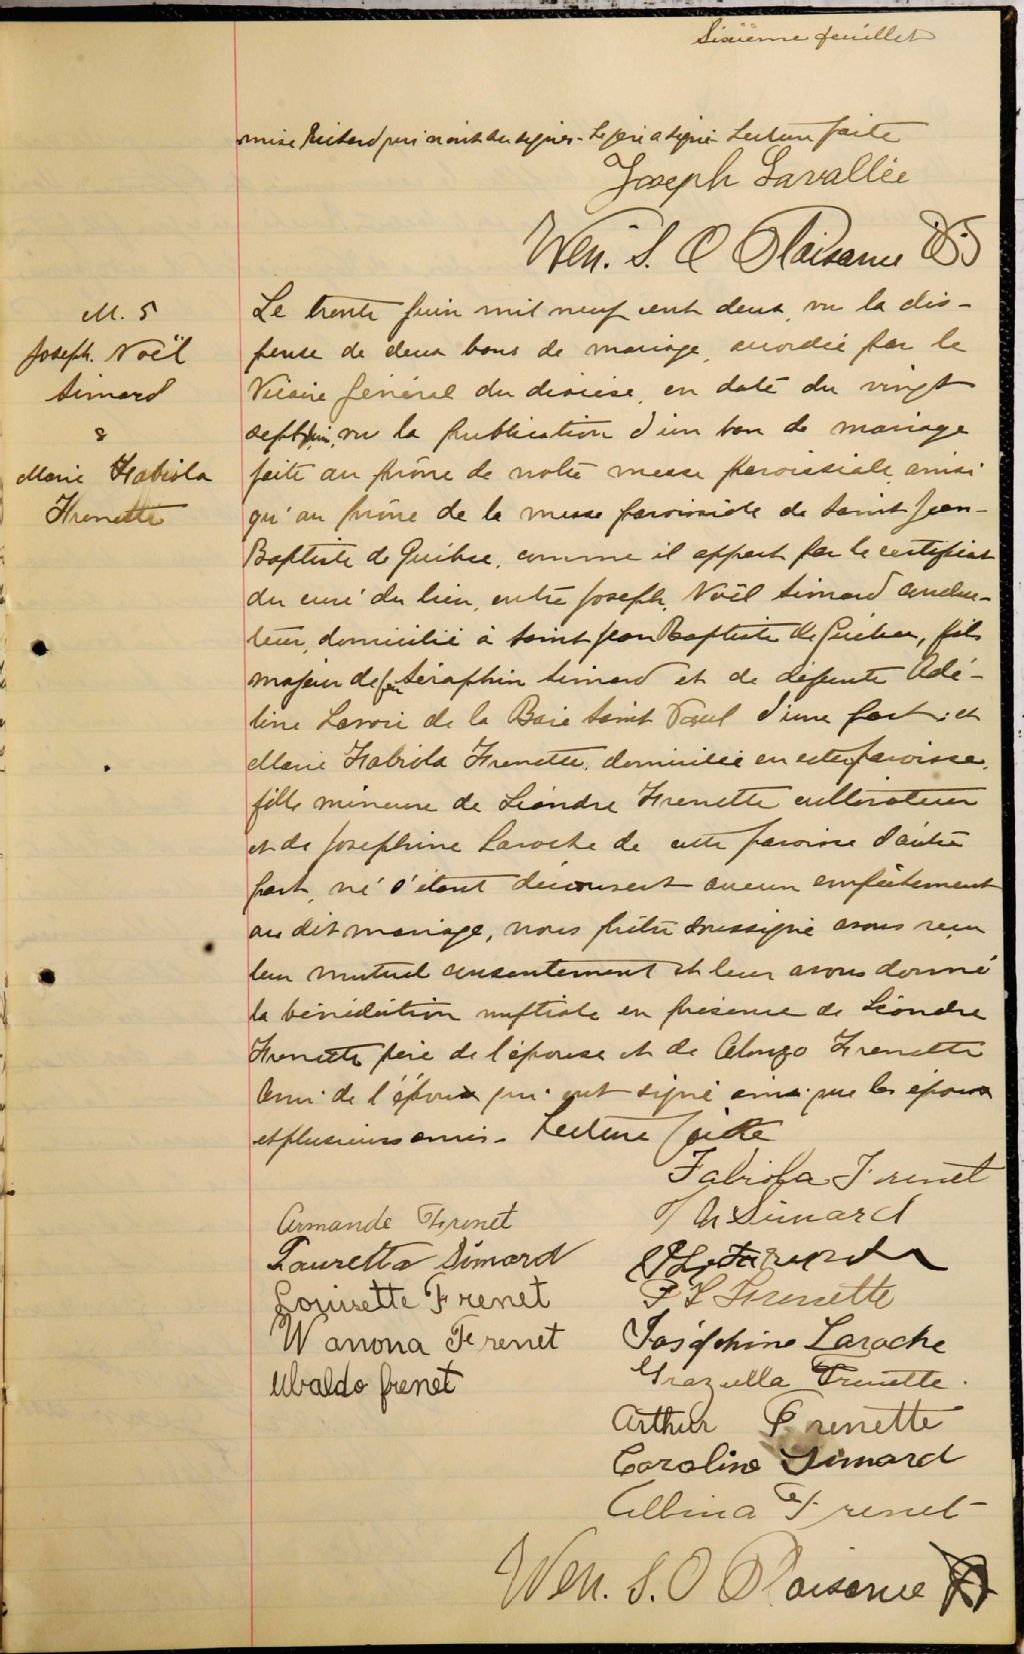 Sixième feuillet
mise Richard qui n'ont su signer. Le père a signé Lecture faite
Joseph Lavallée
Wen. S. O Plaisance
M. 5
Joseph. Noël
Simard
&
Marie Fabiola
Frenette
Le trente juin mil neuf cent deux, vu la dis-
pense de deux bans de mariage, accordée par le
Vicaire général du diocèse, en date du vingt
sept juin, vu la publication d'un ban de mariage
faite au prône de notre messe paroissiale, ainsi
qu'au prône de la messe paroissiale de Saint Jean-
Baptiste de Québec, comme il appert par le certificat
du curé du lieu, entre Joseph, Noël Simard conduc-
teur, domicilié à Saint Jean Baptiste de Québec, fils
majeur de feu Séraphin Simard et de défunte Adé-
line Lavoie de la Baie Saint Paul d'une part: et
Marie Fabiola Frenette, domiciliée en cette paroisse,
fille mineure de Léandre Frenette cultivateur
et de Josephine Laroche de cette paroisse d'autre
part, ne s'étant découvert aucun empêchement
au dit mariage, nous prêtre soussigné avons reçu
leur mutuel consentement et leur avons donné
la bénédiction nuptiale en présence de Léandre
Frenette père de l'épouse et de Alonzo Frenette
ami de l'époux qui ont signé ainsi que les époux
et plusieurs amis. Lecture faite
Fabiola Frenet
J N Simard
Armande Frenet
Lauretta Simard
Louisette Frenet
F L Frenette
Wanona Frenet
Joséphine Laroche
Ubaldo frenet
Grazella Frenette.
Arthur Frenette
Caroline Simard
Albina Frenet
Wen. S. O Plaisance